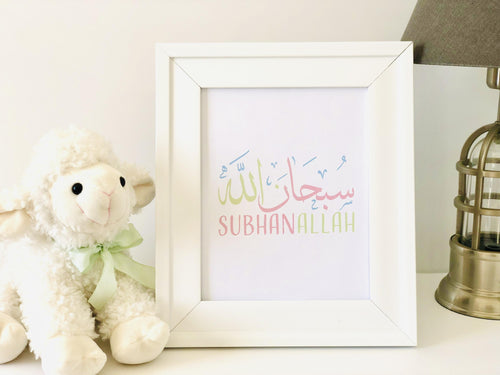 سُبْحَانَ اللّٰه
SUBHANALLAH